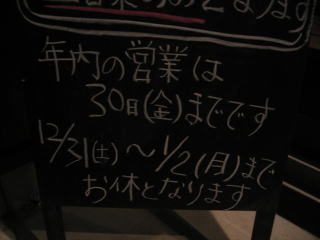 年内の営業は
30日(金)までです
12/31(土)〜1/2(月)まで
お休となります